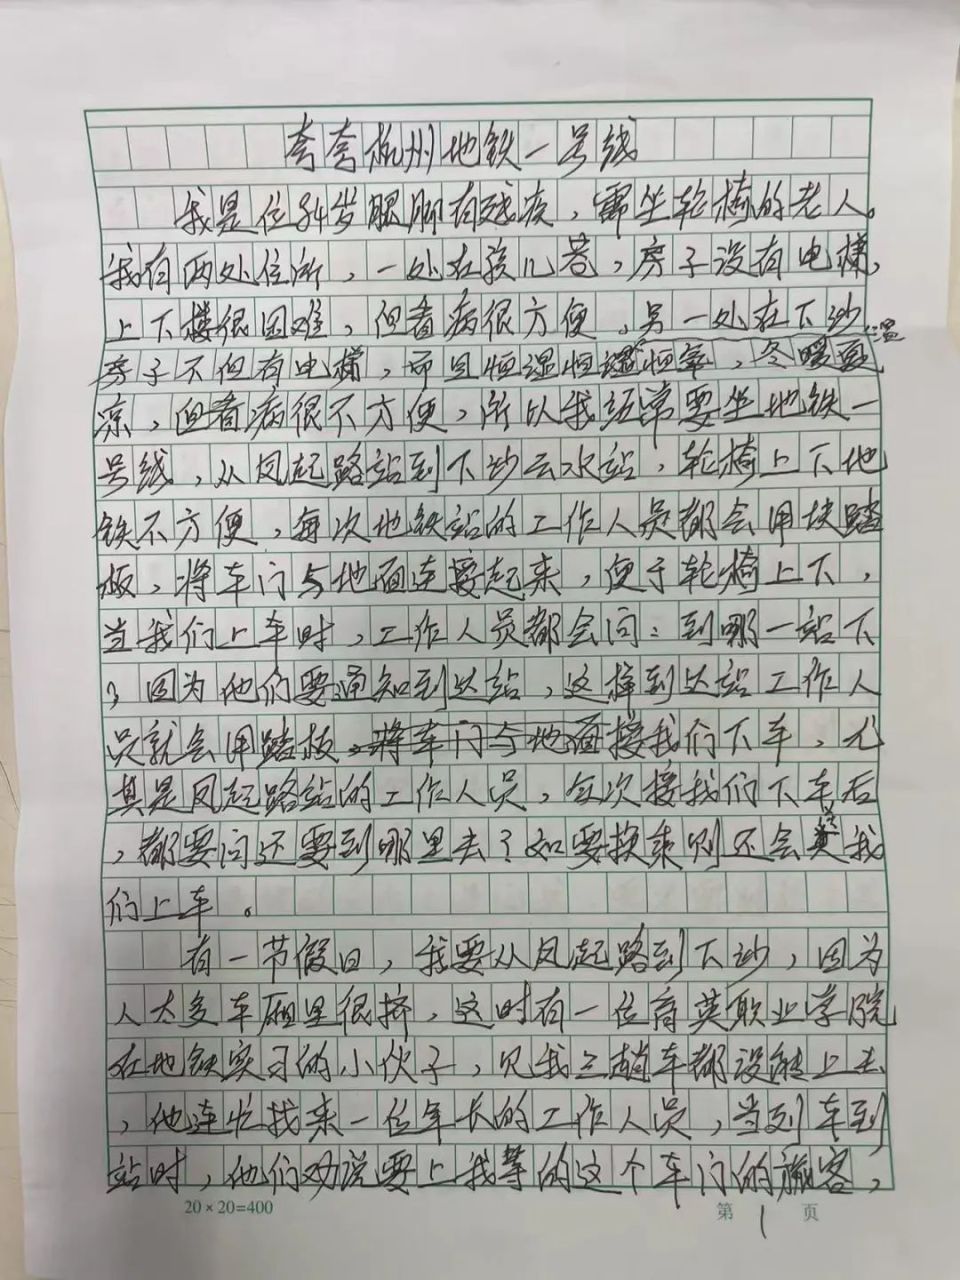 夸夸杭州地铁一号线
我是位84岁腿脚有残疾，需坐轮椅的老人。
我有两处住所，一处在孩儿巷，房子没有电梯，
上下楼很困难，但看病很方便，另一处在下沙
房子不但有电梯，而且恒湿恒温恒氧，冬暖夏
凉，但看病很不方便，所以我经常要坐地铁一
号线，从凤起路站到下沙云水站，轮椅上下地
铁不方便，每次地铁站的工作人员都会用块踏
板，将车门与地面连接起来，便于轮椅上下，
当我们上车时，工作人员都会问：到哪一站下
？因为他们要通知到达站，这样到达站工作人
员就会用踏板接我们下车，尤
其是凤起路站的工作人员，每次接我们下车后
，都要问还要到哪里去？如要换乘则还会送我
们上车。
有一节假日，我要从凤起路到下沙，因为
人太多车厢里很挤，这时有一位育英职业学院
在地铁实习的小伙子，见我三趟车都没能上去
，他连忙找来一位年长的工作人员，当列车到
站时，他们劝说要上我等的这个车门的旅客，
20×20=400
第 1 页